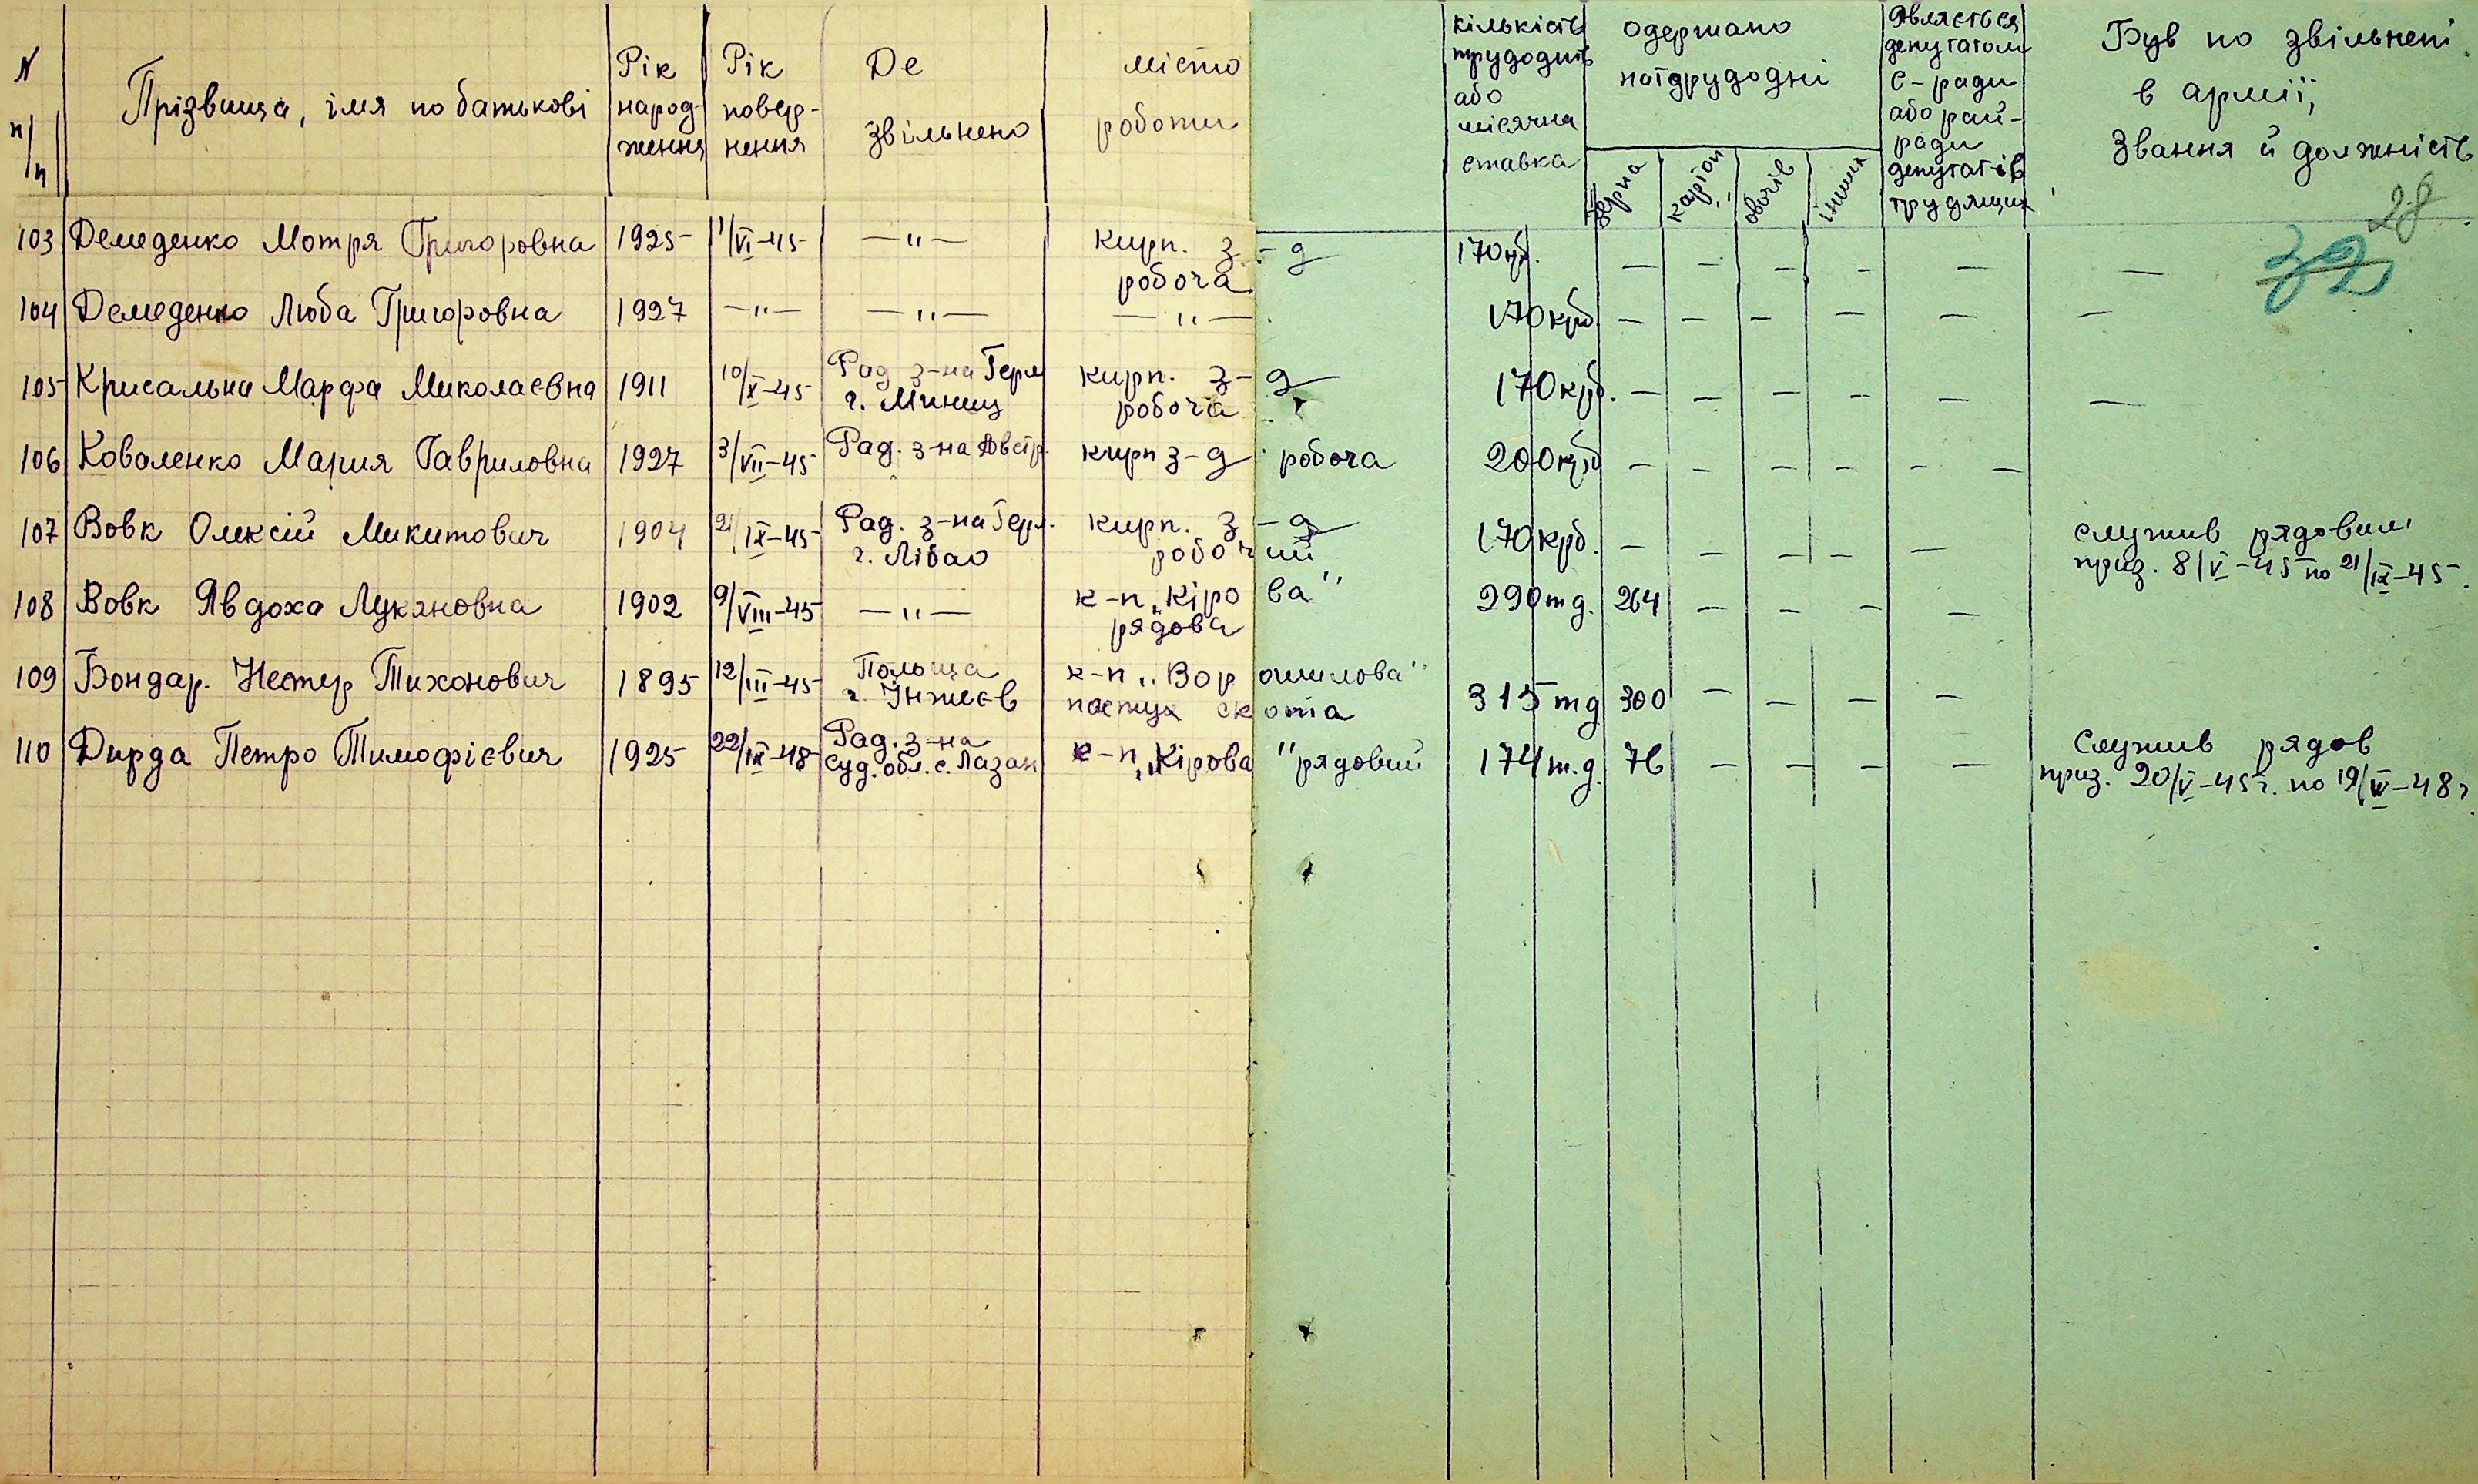 N п/п
Прізвища, імя по батькові
Рік народ-ження
Рік повер-нення
Де звільнено
місто роботи
кількість трудоднів або місячна ставка
одержано на трудодні
зерна
картоп.
овочів
інших
являється депутатом с-ради або рай-ради депутатів трудящих
Був по звільнені в армії, звання й должність
28
32
103 Демеденко Мотря Григоровна 1925 1/VI-45 —"— кирп. з-д робоча 170крб. — — — — — —
104 Демеденко Люба Григоровна 1927 —"— —"— —"— 170крб — — — — — —
105 Крисальна Марфа Миколаєвна 1911 10/X-45 Рад з-на Герм г. Миниц кирп. з-д робоча 170крб. — — — — — —
106 Коваленко Мария Гавриловна 1927 3/VII-45 Рад. з-на Австр. кирп з-д робоча 200крб — — — — — —
107 Вовк Олексій Микитович 1904 21/IX-45 Рад. з-на Герм. г. Лібао кирп. з-д робочий 170крб. — — — — — служив рядовим приз. 8/V-45 по 21/IX-45.
108 Вовк Явдоха Лукяновна 1902 9/VIII-45 —"— к-п „Кірова" рядова 290тд. 264 — — — —
109 Бондар. Нестер Тихонович 1895 12/III-45 Польща г. Інжеєв к-п „Ворошилова" пастух скота 315тд 300 — — — —
110 Дирда Петро Тимофієвич 1925 22/IX-48 Рад. з-на Суд. обл. с. Лазан к-п „Кірова" рядовий 174т.д. 76 — — — — Служив рядов приз. 20/V-45г. по 19/IV-48г